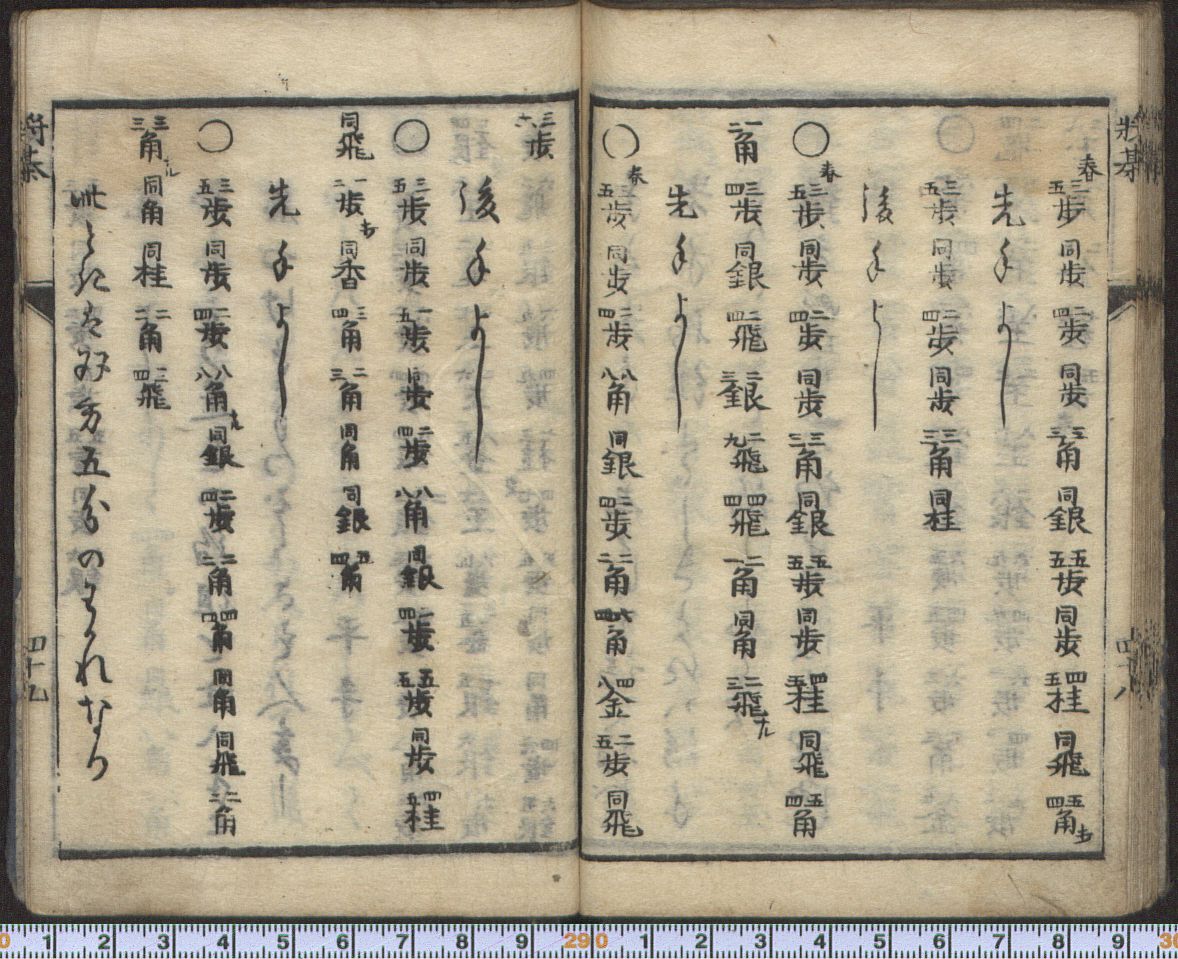 将棊 四十八
春 三五歩 同歩 二四歩 同歩 三三角 同銀 五五歩 同歩 四五桂 同飛 五四角打
先手よし
○ 三五歩 同歩 二四歩 同歩 三三角 同桂
後手よし
○春 三五歩 同歩 二四歩 同歩 三三角 同銀 五五歩 同歩 四五桂 同飛 五四角
一二角 三四歩 同銀 二四飛 二三銀 二九飛 四四飛 二一角 同角 三二飛ナル
先手よし
○春 三五歩 同歩 二四歩 八八角 同銀 二四歩 二二角 六四角 四八金 二五歩 同飛
三六歩
後手よし
○ 三五歩 同歩 一五歩 同歩 二四歩 八八角 同銀 二四歩 五五歩 同歩 四五桂
同飛 一二歩打 同香 三四角 二三角 同角 同銀 五四角
先手よし
○ 三五歩 同歩 二四歩 八八角ナル 同銀 二四歩 二二角 四四角 同角 同飛 二二角
三三角ナル 同角 同桂 二二角 二四飛
此 双方五分のわかれなり
将棊 四十九